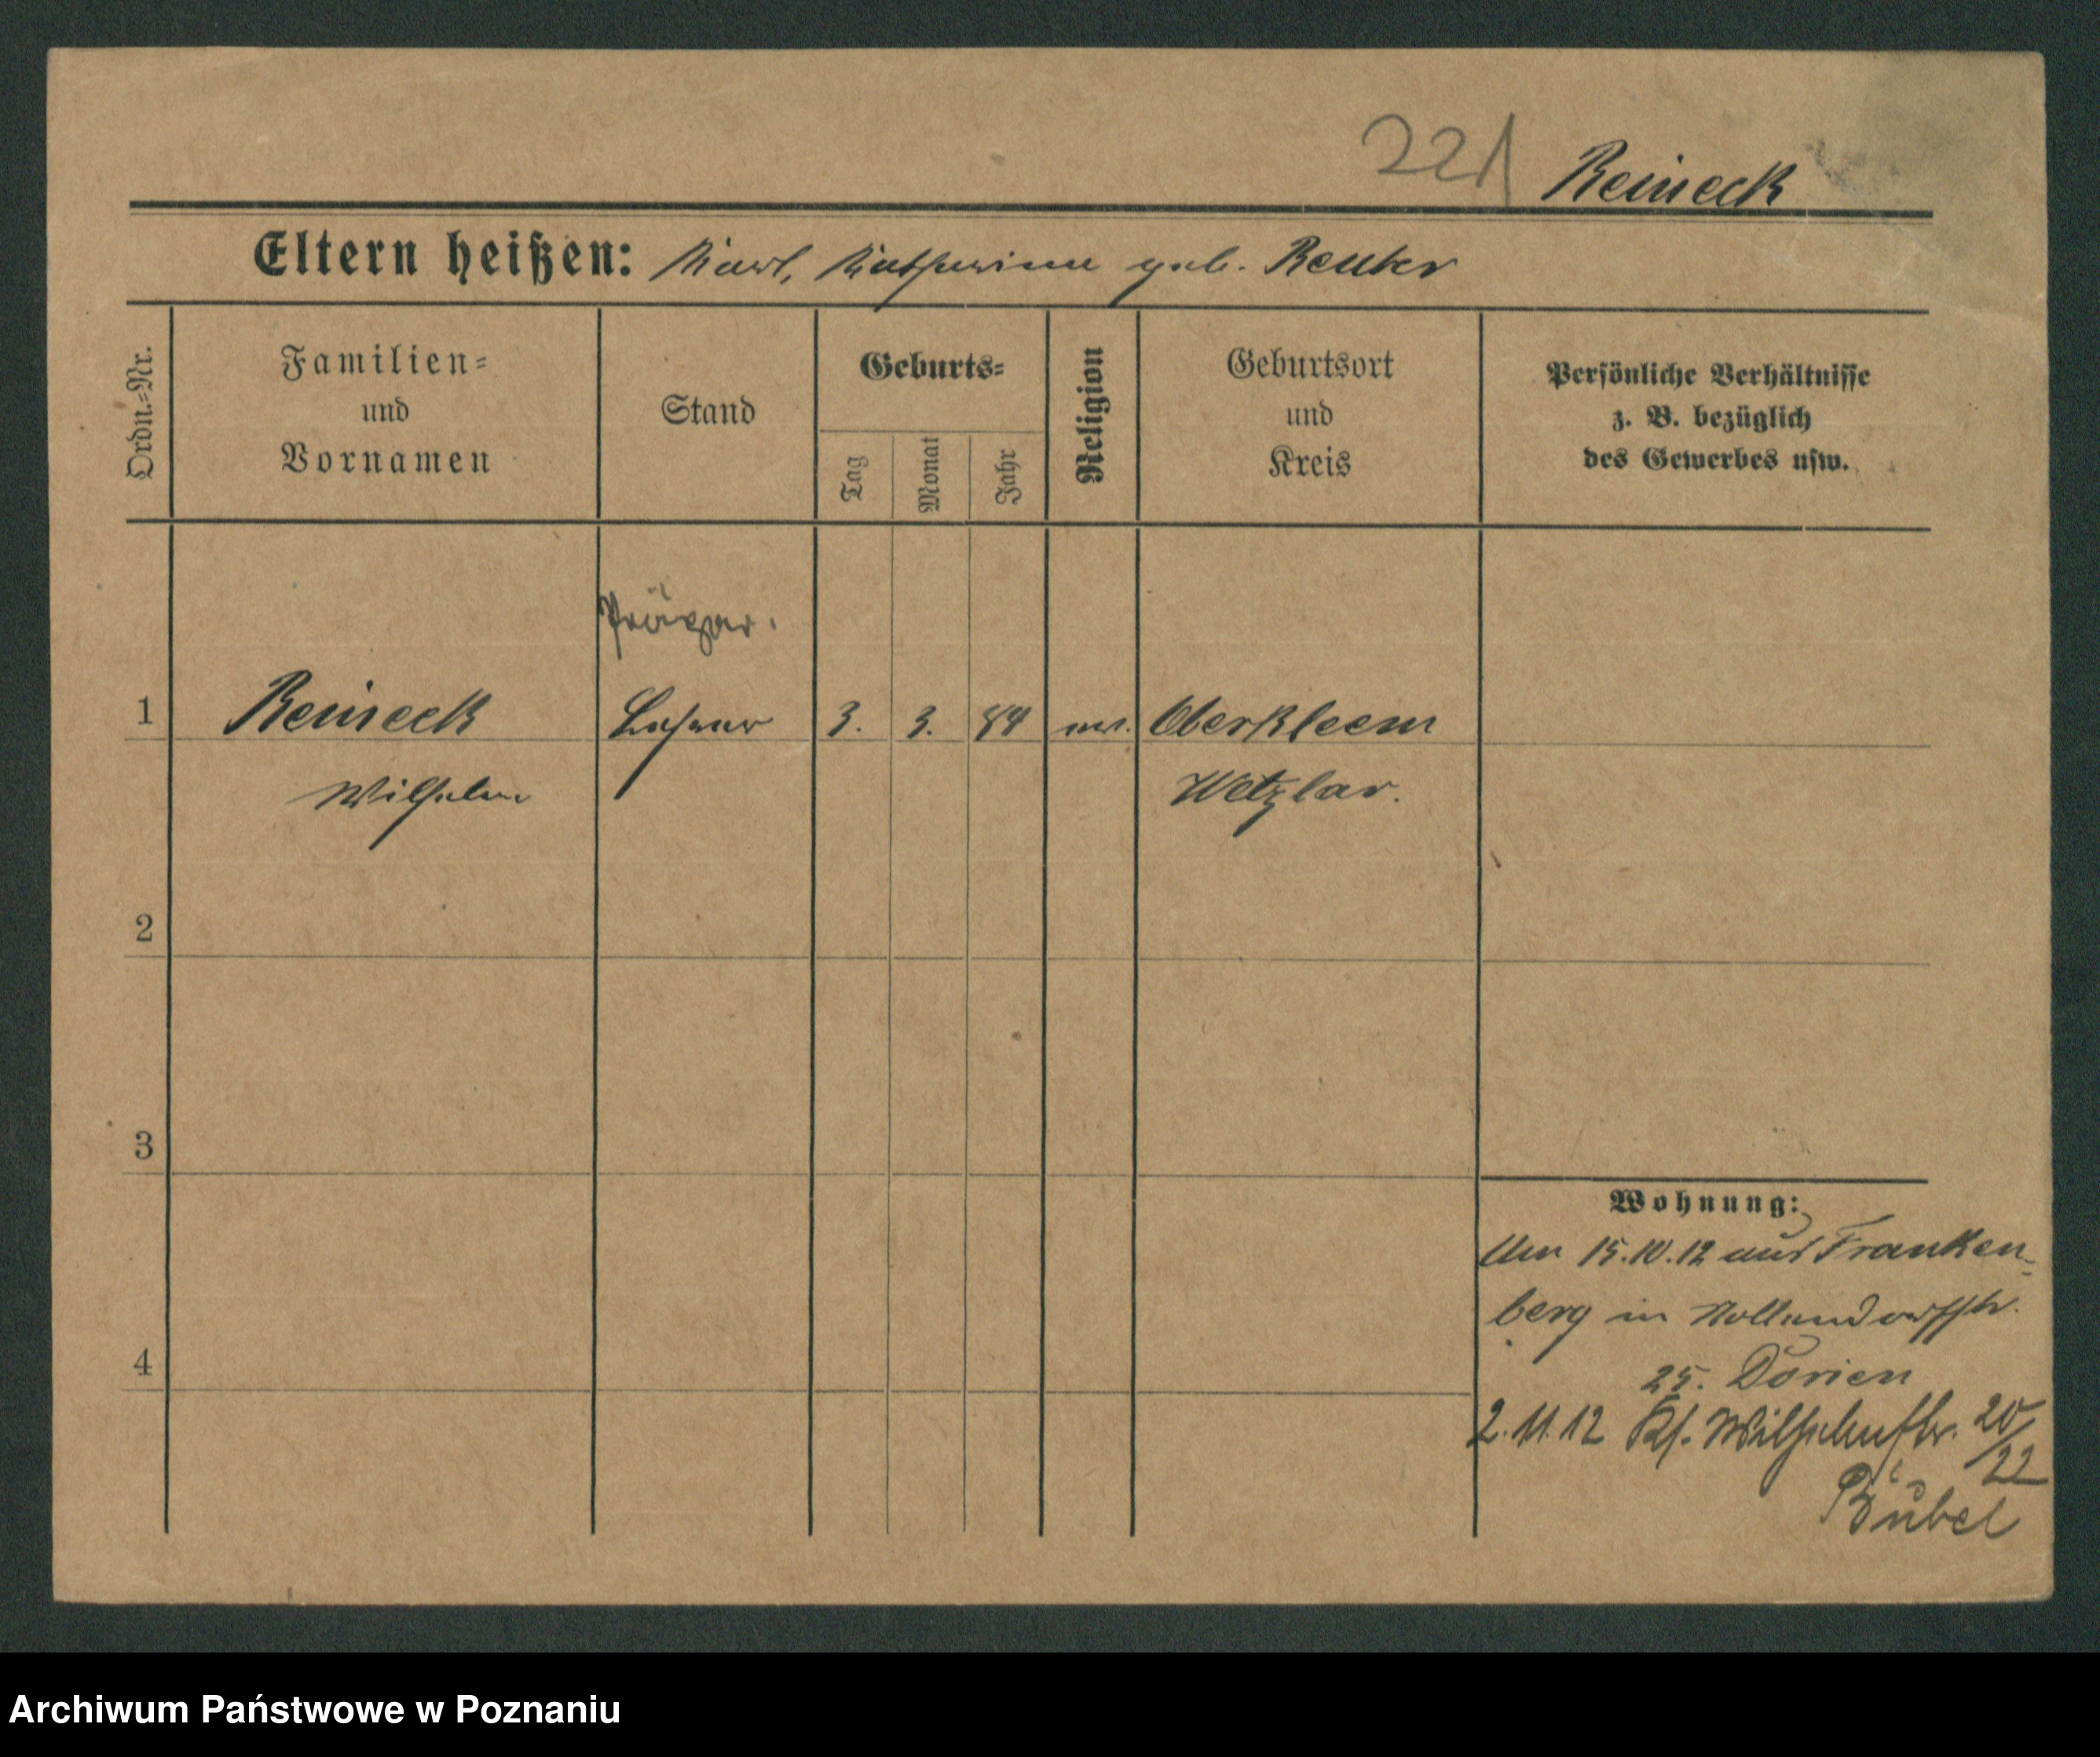 221 Reineck
Eltern heißen: Karl, Katharina geb. Reuter
Ordn.-Nr.
Familien-
und
Vornamen
Stand
Geburts-
Tag
Monat
Jahr
Religion
Geburtsort
und
Kreis
Persönliche Verhältnisse
z. B. bezüglich
des Gewerbes usw.
1 Reineck Lehrer 3. 3. 84 ev. Oberkleen
Wilhelm Wetzlar.
2
3
4
Wohnung:
Am 15.10.12 aus Franken-
berg in Hollendorffstr.
25. Dorien
2.11.12 Ks. Wilhelmstr. 20/22
Bübel
Archiwum Państwowe w Poznaniu